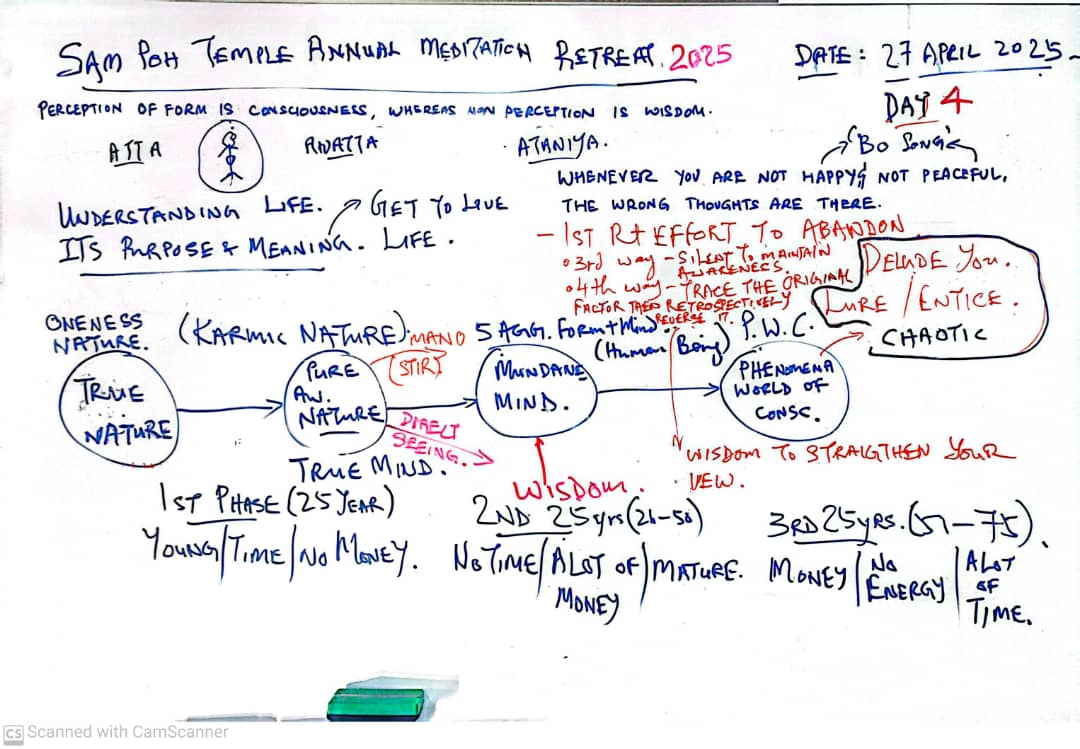 SAM POH TEMPLE ANNUAL MEDITATION RETREAT. 2025
DATE: 27 APRIL 2025
DAY 4
PERCEPTION OF FORM IS CONSCIOUSNESS, WHEREAS NON PERCEPTION IS WISDOM.
ATTA
ANATTA
ATANIYA.
"BO SONG"
WHENEVER YOU ARE NOT HAPPY & NOT PEACEFUL,
THE WRONG THOUGHTS ARE THERE.
UNDERSTANDING LIFE.
ITS PURPOSE & MEANING.
GET TO LIVE
LIFE.
- 1ST Rt EFFORT TO ABANDON
• 3rd way - SILENT TO MAINTAIN
AWARENESS.
• 4th way - TRACE THE ORIGINAL
FACTOR RETROSPECTIVELY
REVERSE IT.
DELUDE YOU.
LURE / ENTICE.
CHAOTIC
ONENESS
NATURE.
(KARMIC NATURE).
MANO
(STIR)
5 AGG. FORM + MIND
(Human Being)
P.W.C.
TRUE
NATURE
PURE
AW.
NATURE
MUNDANE
MIND.
PHENOMENA
WORLD OF
CONSC.
DIRECT
SEEING.
TRUE MIND.
WISDOM.
WISDOM TO STRAIGTHEN YOUR
VIEW.
1ST PHASE (25 YEAR)
YOUNG/TIME/NO MONEY.
2ND 25 yrs (26-50)
NO TIME/ALOT OF/MATURE.
MONEY
3RD 25 YRS. (51-75).
MONEY/NO
ENERGY/ALOT
OF
TIME.
CS Scanned with CamScanner